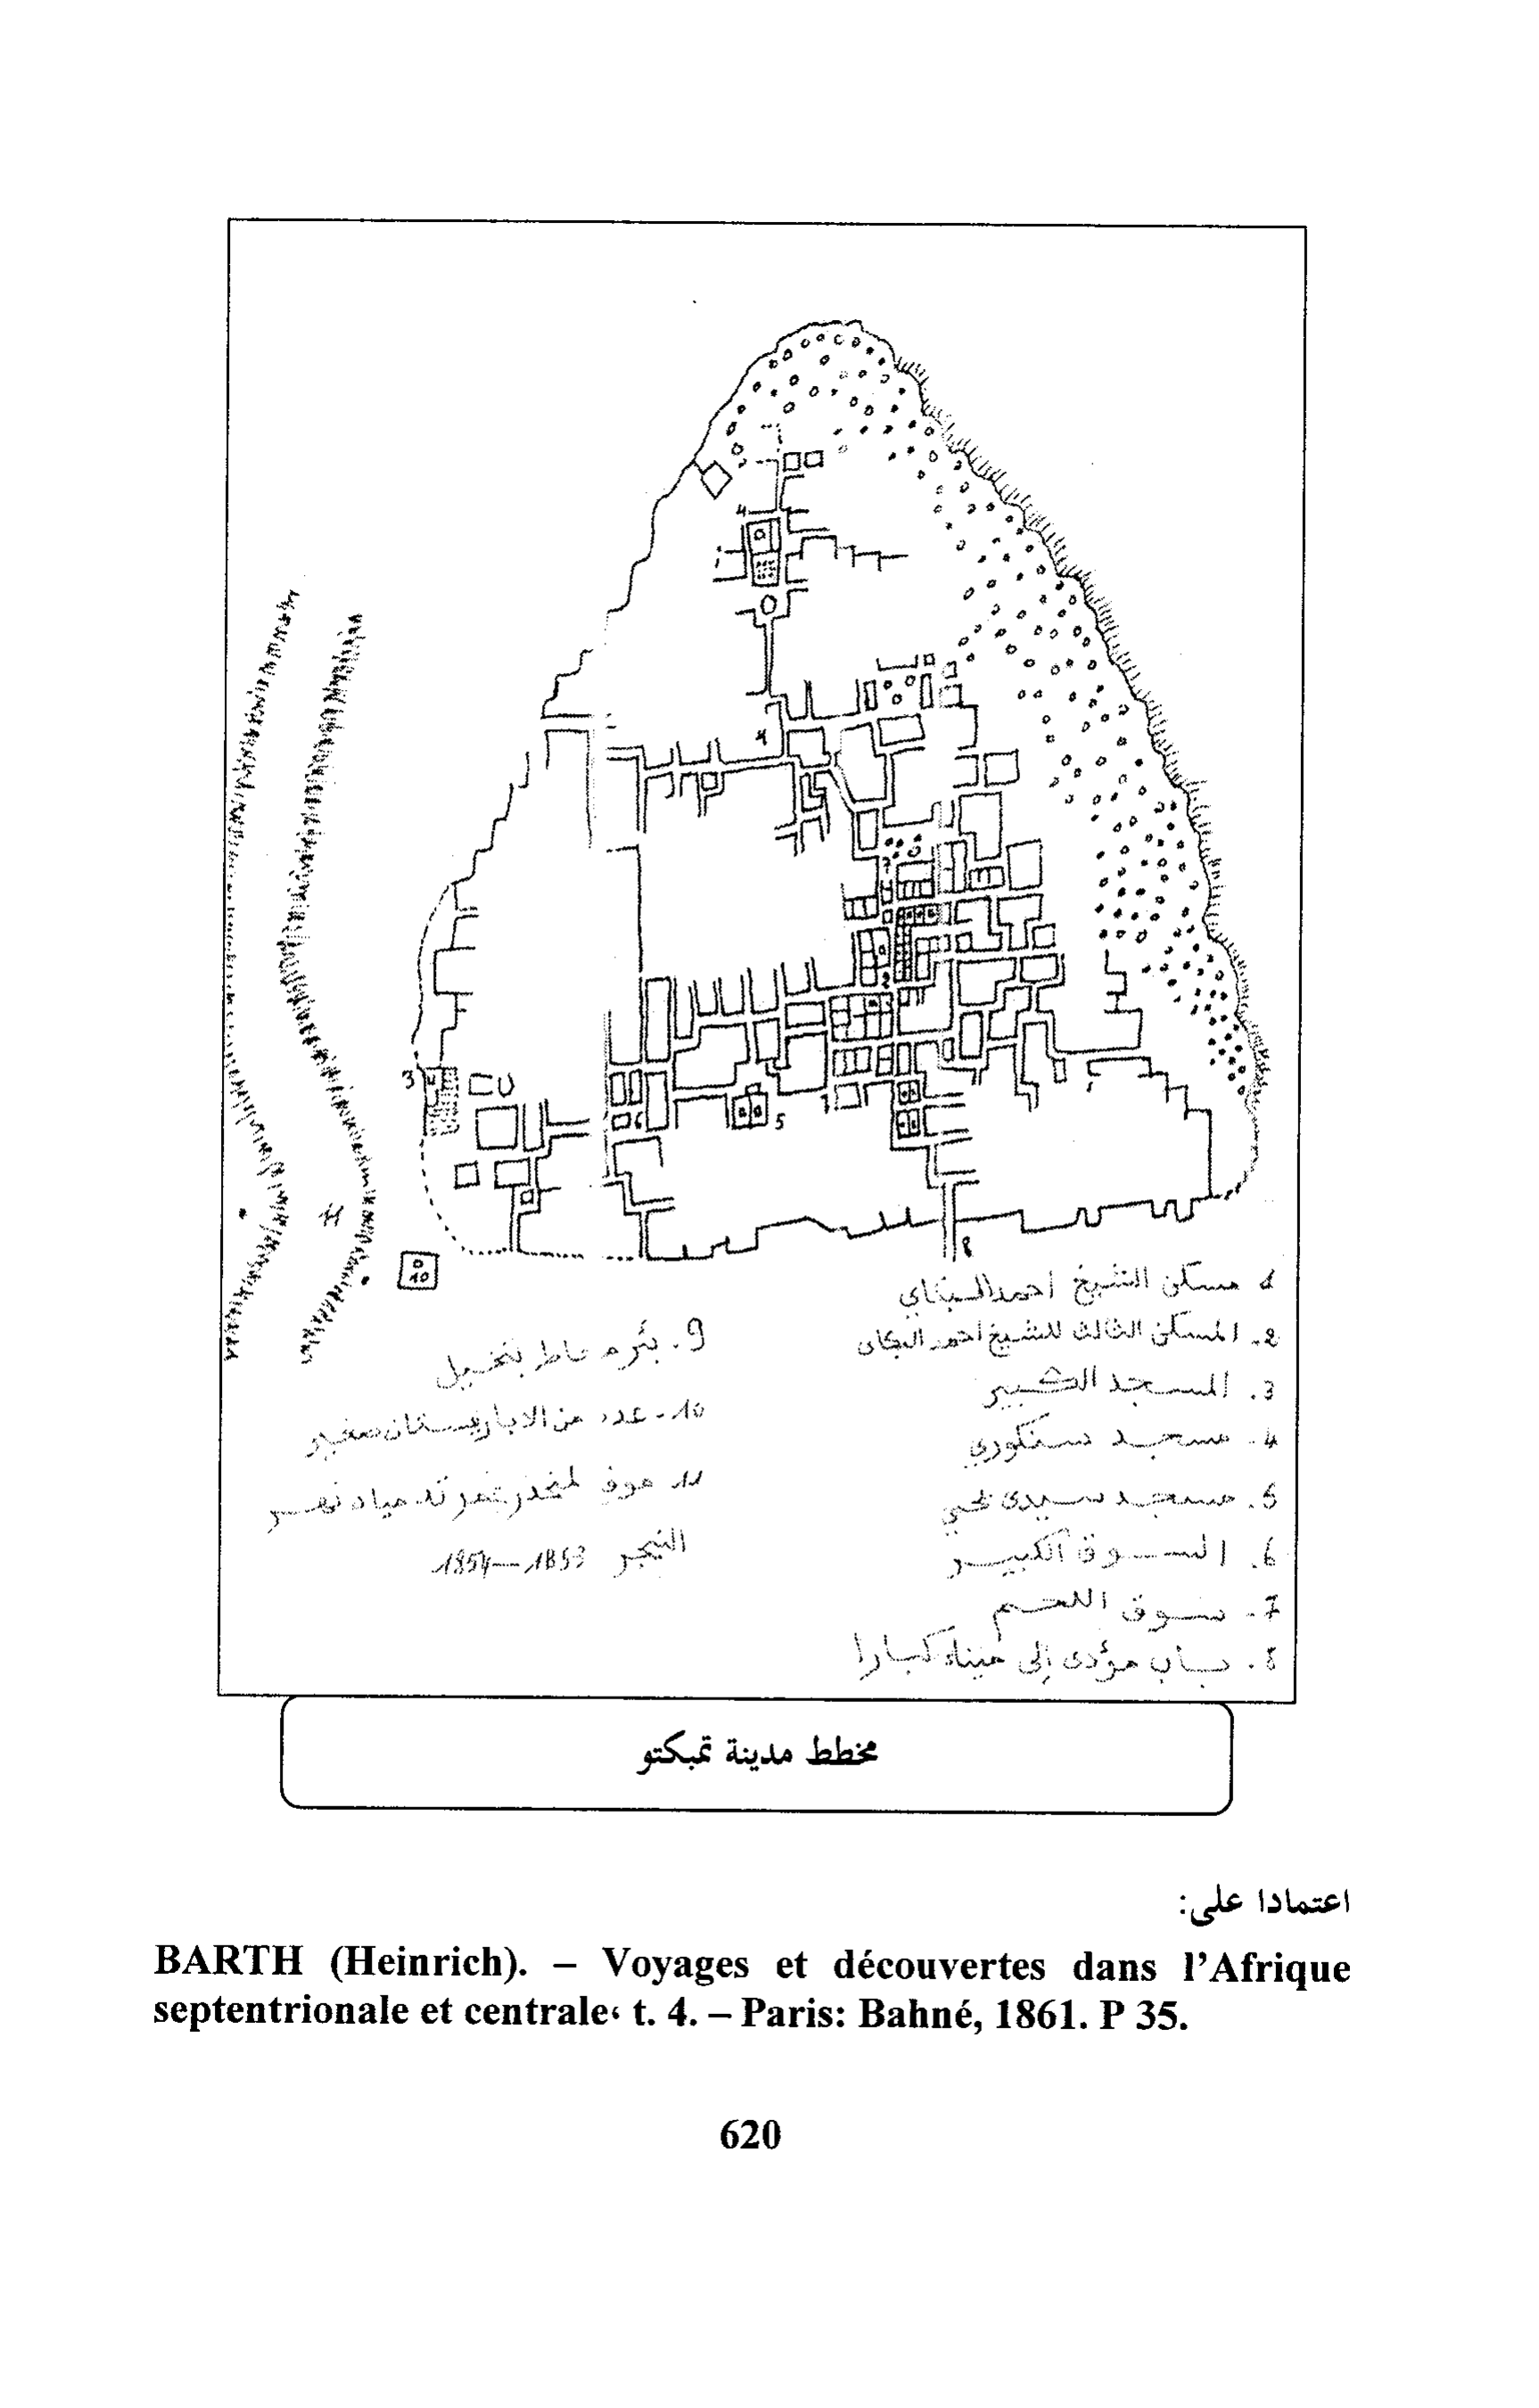 4
4
7
2
3
6
5
8
11
10
1 مسكن الشيخ احمد البكاي
2. المسكن الثالث للشيخ احمد البكاي
3. المسجد الكبير
4. مسجد سنكوري
5. مسجد سيدى يحي
6. السوق الكبير
7. سوق اللحم
8. باب مؤدى إلى ميناء كبارا
9. بئر محاط بنخيل
10. عدد من الابار بستان صغير
11. حوض منخفض مياه نهر
النيجر 1853 – 1854
مخطط مدينة تمبكتو
اعتمادا على:
BARTH (Heinrich). – Voyages et découvertes dans l'Afrique
septentrionale et centrale‹ t. 4. – Paris: Bahné, 1861. P 35.
620